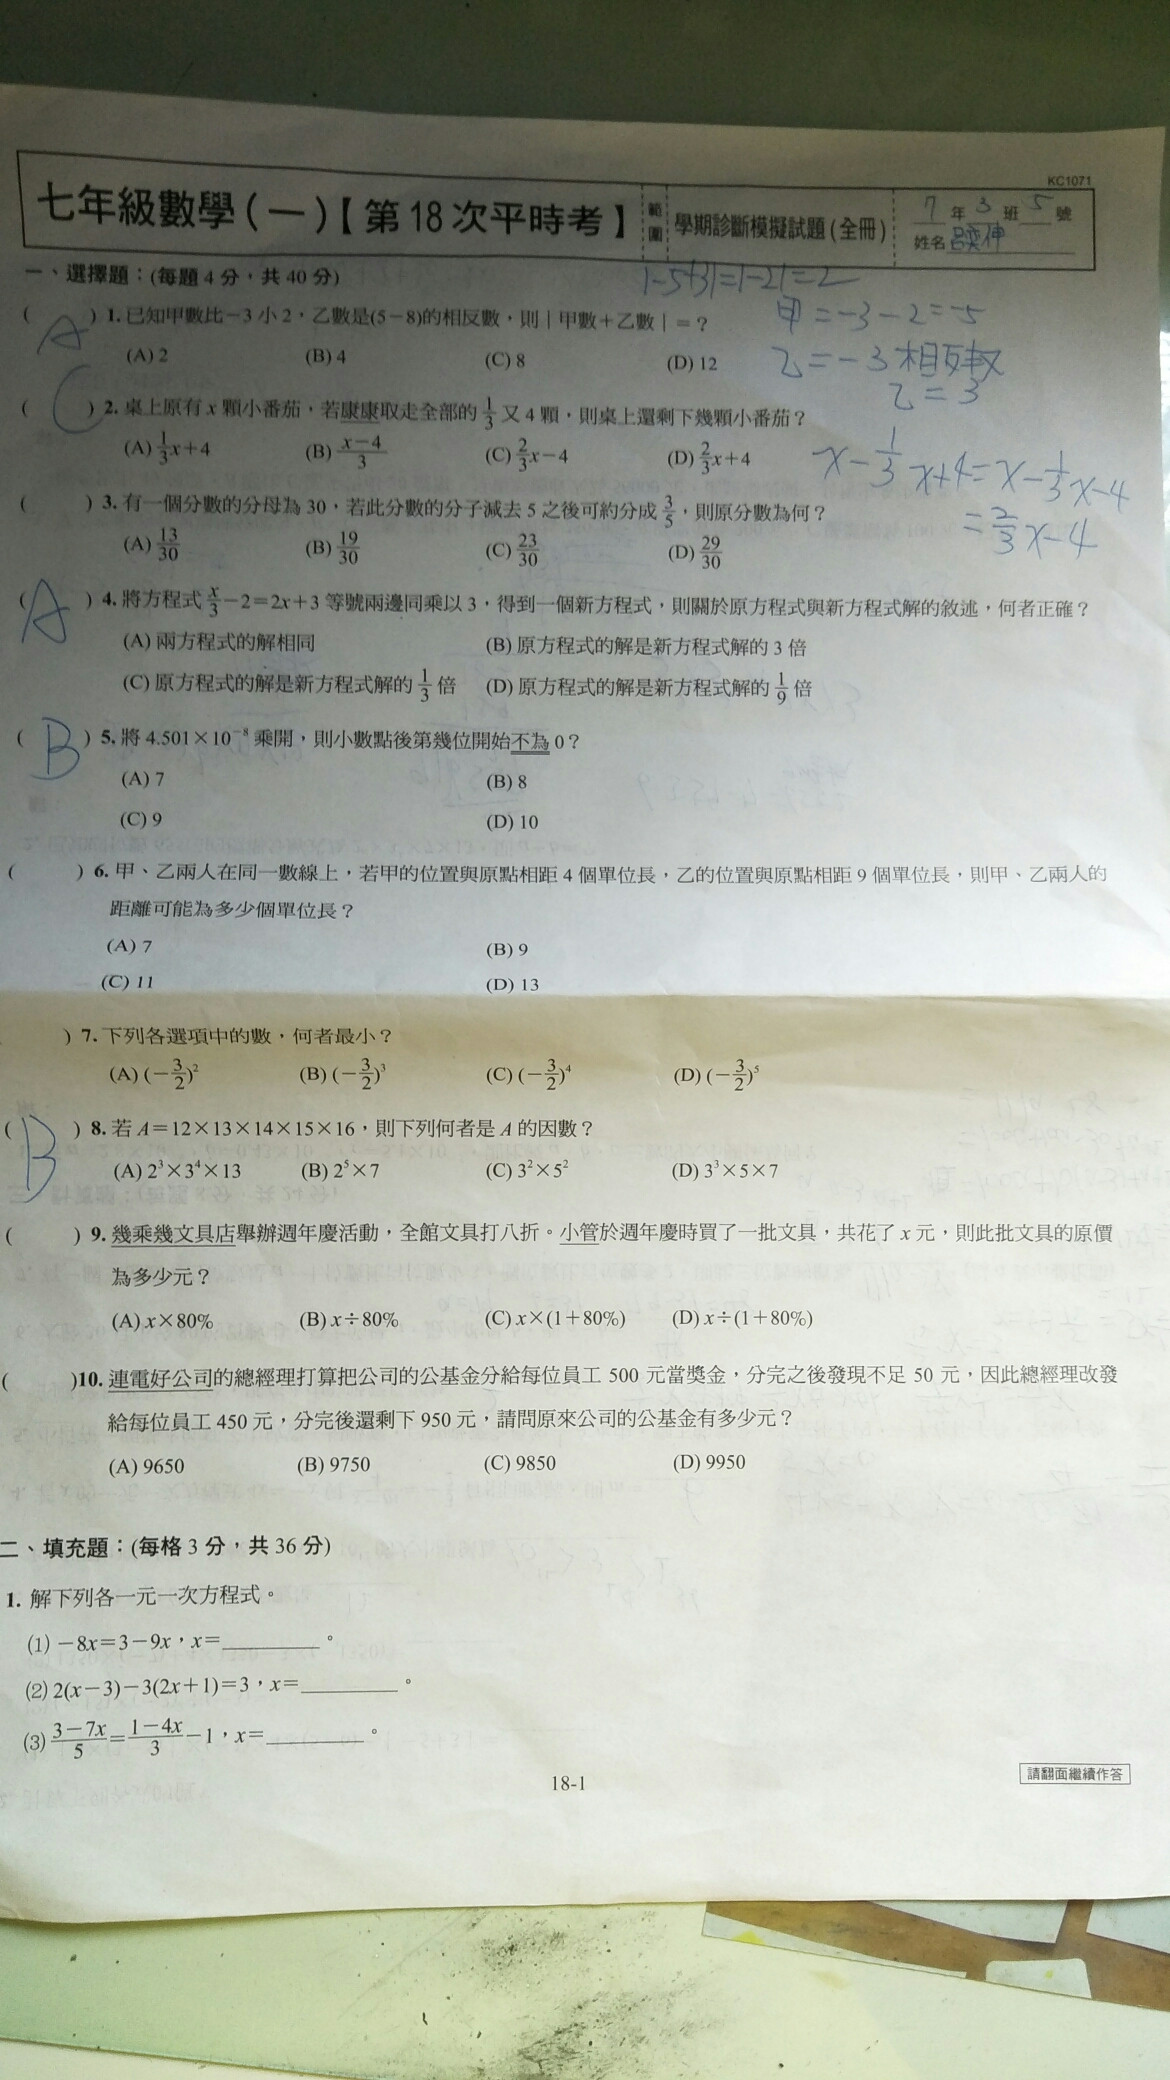 KC1071
七年級數學(一)【第18次平時考】 範圍 學期診斷模擬試題(全冊) 7年3班5號
姓名
一、選擇題：(每題4分，共40分)
|-5+3|=|-2|=2
( A ) 1. 已知甲數比－3小2，乙數是(5－8)的相反數，則｜甲數＋乙數｜＝？
甲=-3-2=-5
(A) 2 (B) 4 (C) 8 (D) 12
乙=-3相反數
乙=3
( C ) 2. 桌上原有x顆小番茄，若康康取走全部的1/3又4顆，則桌上還剩下幾顆小番茄？
(A) 1/3x＋4 (B) x－4/3 (C) 2/3x－4 (D) 2/3x＋4
x-1/3x+4=x-1/3x-4
=2/3x-4
( ) 3. 有一個分數的分母為30，若此分數的分子減去5之後可約分成3/5，則原分數為何？
(A) 13/30 (B) 19/30 (C) 23/30 (D) 29/30
( A ) 4. 將方程式x/3－2＝2x＋3等號兩邊同乘以3，得到一個新方程式，則關於原方程式與新方程式解的敘述，何者正確？
(A) 兩方程式的解相同 (B) 原方程式的解是新方程式解的3倍
(C) 原方程式的解是新方程式解的1/3倍 (D) 原方程式的解是新方程式解的1/9倍
( B ) 5. 將4.501×10⁻⁸乘開，則小數點後第幾位開始不為0？
(A) 7 (B) 8
(C) 9 (D) 10
( ) 6. 甲、乙兩人在同一數線上，若甲的位置與原點相距4個單位長，乙的位置與原點相距9個單位長，則甲、乙兩人的
距離可能為多少個單位長？
(A) 7 (B) 9
(C) 11 (D) 13
) 7. 下列各選項中的數，何者最小？
(A) (－3/2)² (B) (－3/2)³ (C) (－3/2)⁴ (D) (－3/2)⁵
( B ) 8. 若A＝12×13×14×15×16，則下列何者是A的因數？
(A) 2³×3⁴×13 (B) 2⁵×7 (C) 3²×5² (D) 3³×5×7
( ) 9. 幾乘幾文具店舉辦週年慶活動，全館文具打八折。小管於週年慶時買了一批文具，共花了x元，則此批文具的原價
為多少元？
(A) x×80% (B) x÷80% (C) x×(1＋80%) (D) x÷(1＋80%)
( )10. 連電好公司的總經理打算把公司的公基金分給每位員工500元當獎金，分完之後發現不足50元，因此總經理改發
給每位員工450元，分完後還剩下950元，請問原來公司的公基金有多少元？
(A) 9650 (B) 9750 (C) 9850 (D) 9950
二、填充題：(每格3分，共36分)
1. 解下列各一元一次方程式。
(1) －8x＝3－9x，x＝________。
(2) 2(x－3)－3(2x＋1)＝3，x＝________。
(3) 3－7x/5＝1－4x/3－1，x＝________。
18-1
請翻面繼續作答